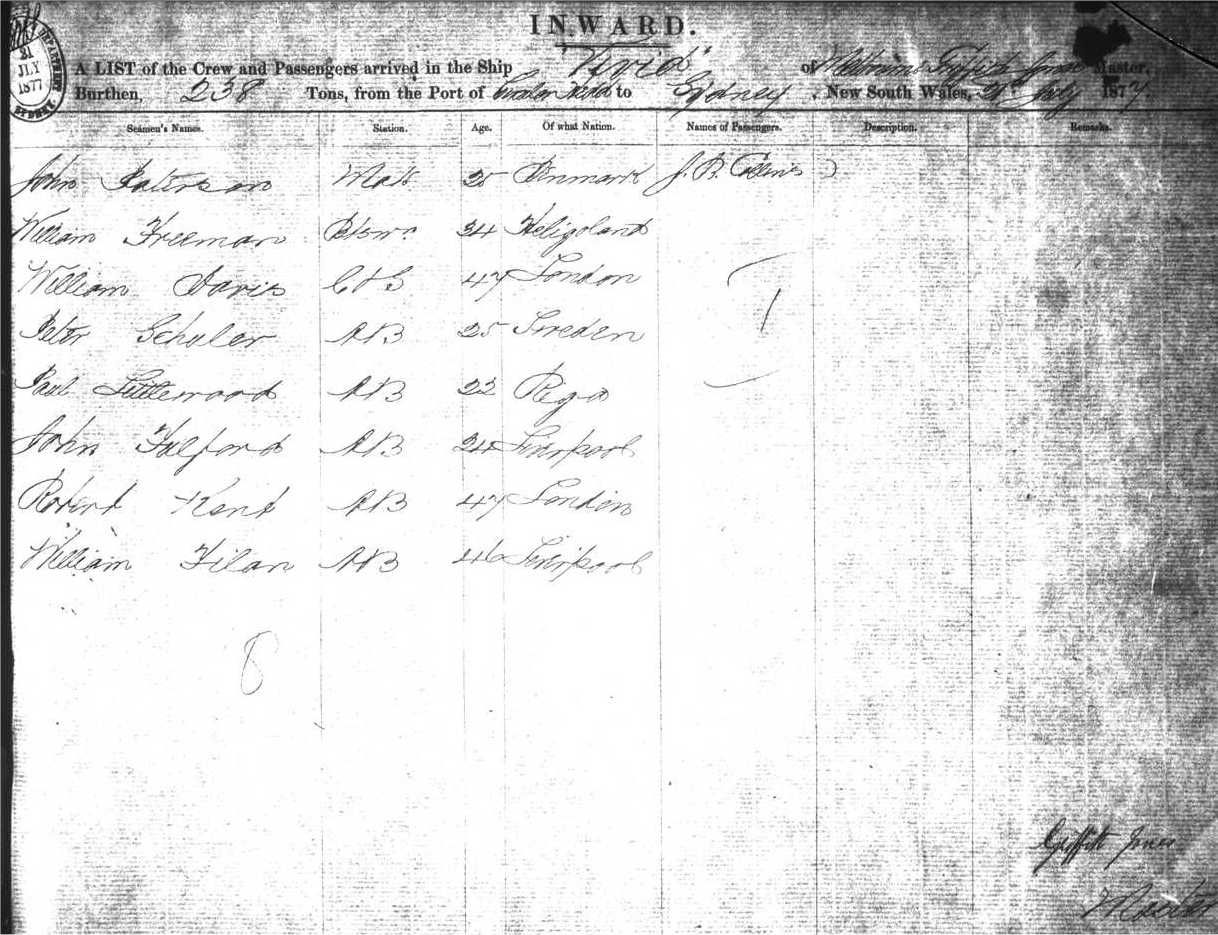 INWARD.
21
JLY
1877
SYDNEY
A LIST of the Crew and Passengers arrived in the Ship of Melbourne Griffith Jones Master,
Burthen, 238 Tons, from the Port of to Sydney, New South Wales, 21st July 1877
Seamen's Names. Station. Age. Of what Nation. Names of Passengers. Description. Remarks.
John Paterson Mate 25 Denmark J. B. Collins
William Freeman Btswn 34 Heligoland
William Davis C & S 47 London
1
Peter Schuler AB 25 Sweden
Paul Littlewood AB 22 Riga
John Fulford AB 24 Liverpool
Robert Kent AB 47 London
William Filan AB 46 Liverpool
8
Griffith Jones
Master